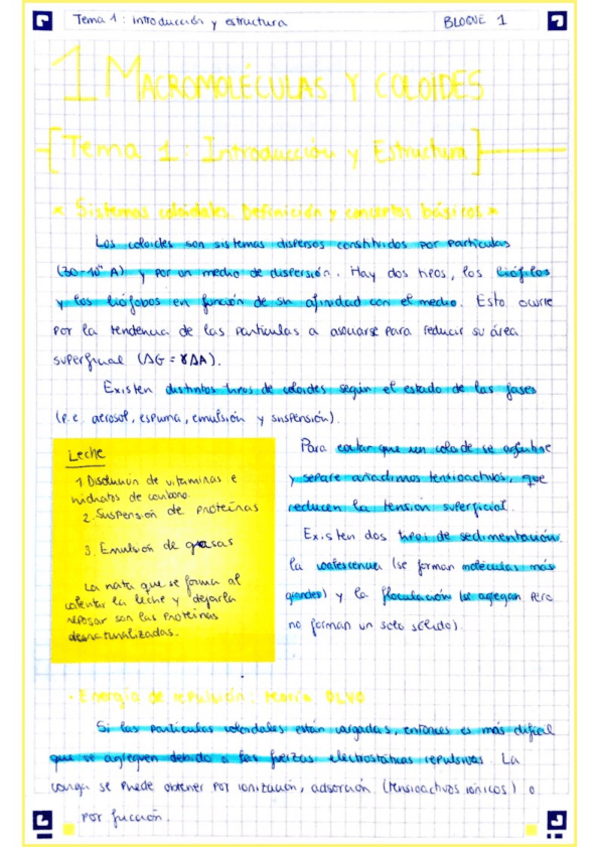 Tema 1: introducción y estructura
BLOQUE 1
1 MACROMOLÉCULAS Y COLOIDES
[Tema 1: Introducción y Estructura]
* Sistemas coloidales. Definición y conceptos básicos *
Los coloides son sistemas dispersos constituidos por partículas
y por un medio de dispersión. Hay dos tipos, los liófilos
y los liófobos en función de su afinidad con el medio. Esto ocurre
por la tendencia de las partículas a asociarse para reducir su área
superficial (ΔG = γΔA).
Existen distintos tipos de coloides según el estado de las fases
(p.e. aerosol, espuma, emulsión y suspensión).
Leche
1. Disolución de vitaminas e
hidratos de carbono.
2. Suspensión de proteínas
3. Emulsión de grasas
La nata que se forma al
calentar la leche y dejarla
reposar son las proteínas
desnaturalizadas.
Para evitar que un coloide se
y separe añadimos tensioactivos, que
reducen la tensión superficial.
Existen dos tipos de sedimentación.
la coalescencia (se forman moléculas más
grandes) y la floculación (se agregan pero
no forman un solo sólido).
· Energía de repulsión. teoría DLVO
Si las partículas coloidales están cargadas, entonces es más difícil
que se agreguen debido a las fuerzas electrostáticas repulsivas. La
carga se puede obtener por ionización, adsorción (tensioactivos iónicos) o
por fricción.